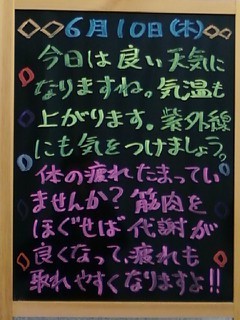 6月10日(木)
今日は良い天気に
なりますね。気温も
上がります。紫外線
にも気をつけましょう。
体の疲れたまってい
ませんか?筋肉を
ほぐせば代謝が
良くなって、疲れも
取れやすくなりますよ!!